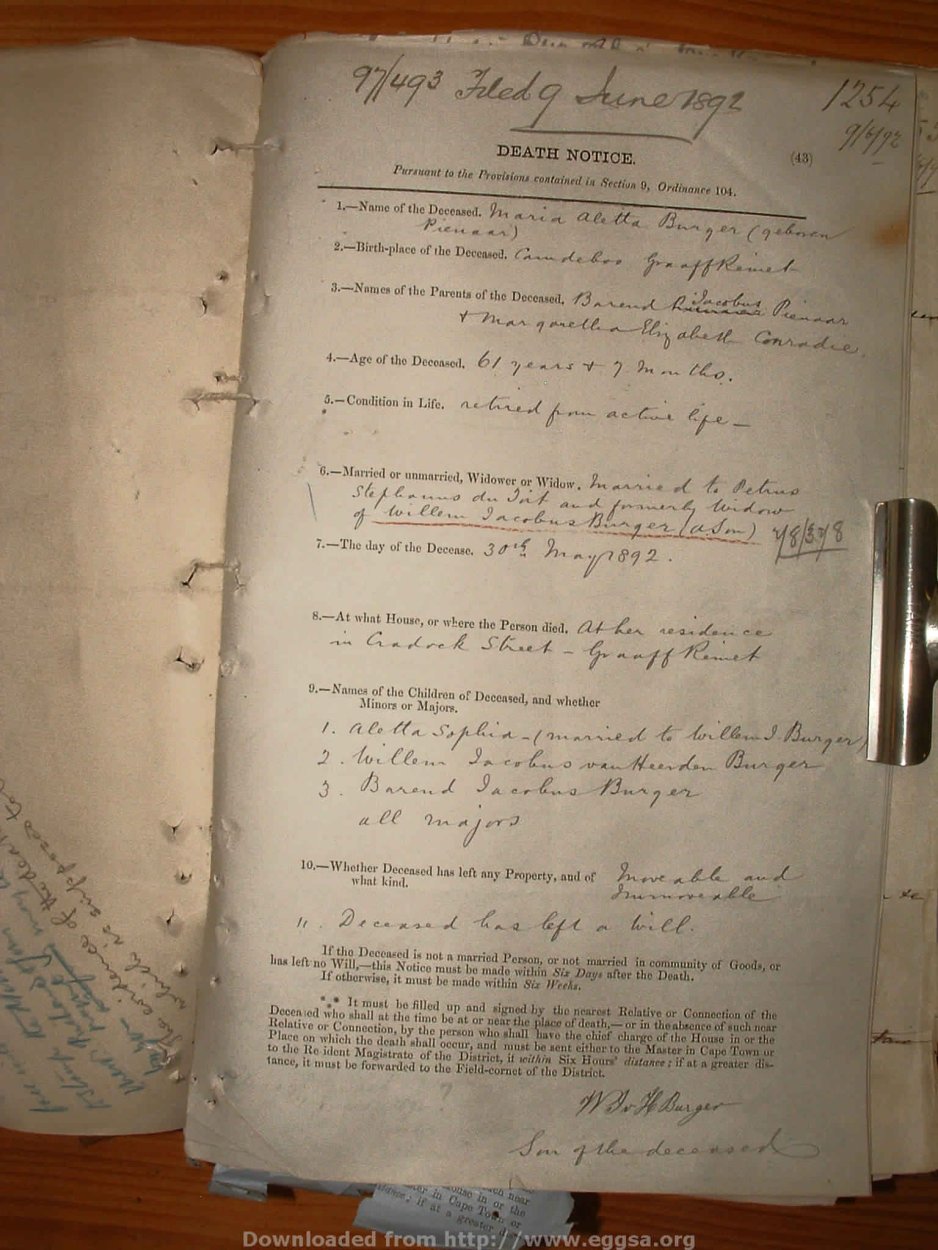 97/493 Filed 9 June 1892 1254
9/6/92
DEATH NOTICE. (43)
Pursuant to the Provisions contained in Section 9, Ordinance 104.
1.—Name of the Deceased. Maria Aletta Burger (geboren
Pienaar)
2.—Birth-place of the Deceased. Camdeboo Graaff Reinet
3.—Names of the Parents of the Deceased. Barend Jacobus Pienaar
+ Margaretha Elizabeth Conradie.
4.—Age of the Deceased. 61 years + 7 months.
5.—Condition in Life. retired from active life —
6.—Married or unmarried, Widower or Widow. Married to Petrus
Stephanus du Toit and formerly Widow
of Willem Jacobus Burger (a. Son) 78/378
7.—The day of the Decease. 30th May 1892.
8.—At what House, or where the Person died. At her residence
in Cradock Street - Graaff Reinet
9.—Names of the Children of Deceased, and whether
Minors or Majors.
1. Aletta Sophia - (married to Willem J Burger)
2. Willem Jacobus van Heerden Burger
3. Barend Jacobus Burger
all majors
10.—Whether Deceased has left any Property, and of Moveable and
what kind. Immoveable
11. Deceased has left a Will.
If the Deceased is not a married Person, or not married in community of Goods, or
has left no Will,—this Notice must be made within Six Days after the Death.
If otherwise, it must be made within Six Weeks.
It must be filled up and signed by the nearest Relative or Connection of the
Deceased who shall at the time be at or near the place of death,—or in the absence of such near
Relative or Connection, by the person who shall have the chief charge of the House in or the
Place on which the death shall occur, and must be sent either to the Master in Cape Town or
to the Resident Magistrate of the District, if within Six Hours' distance; if at a greater dis-
tance, it must be forwarded to the Field-cornet of the District.
W J v H Burger
Son of the deceased
such near
House in or the
in Cape Town or
if at a greater
Downloaded from http://www.eggsa.org